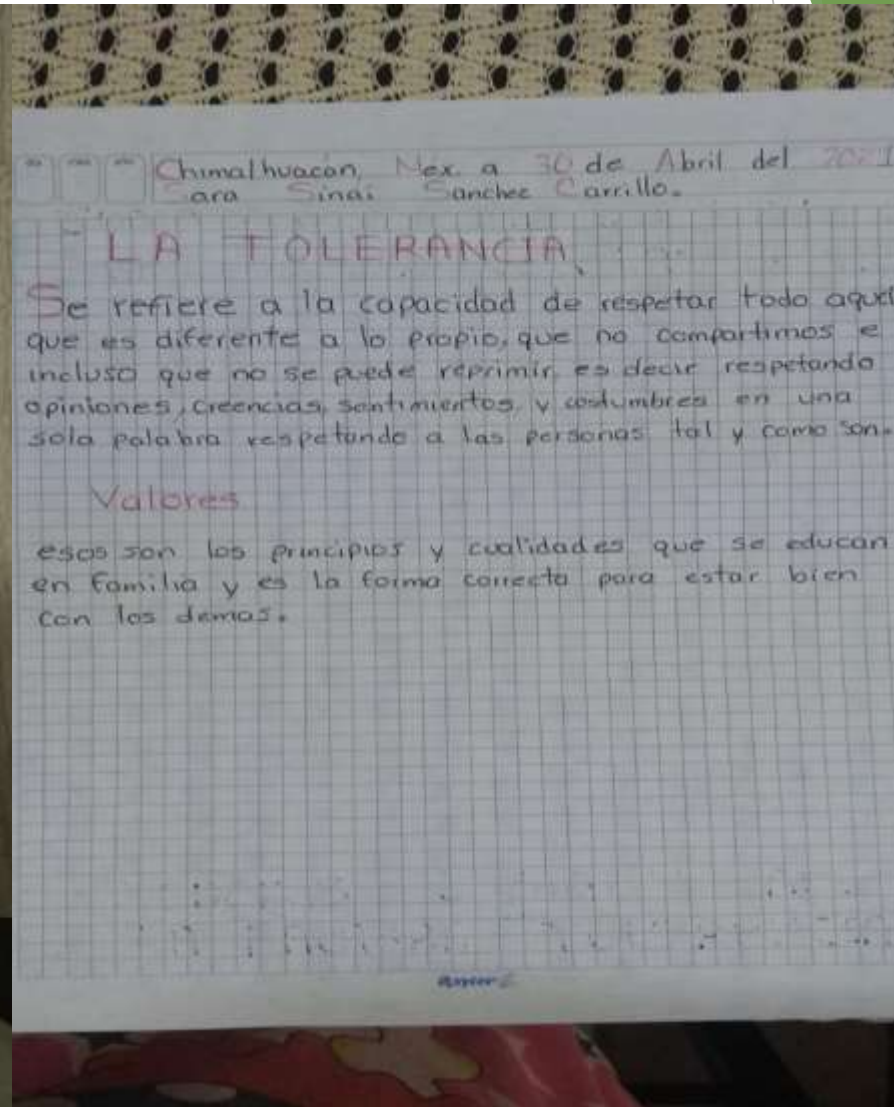 Chimalhuacán, Mex. a 30 de Abril del 2021
Sara Sinai Sanchec Carrillo.
LA TOLERANCIA
Se refiere a la capacidad de respetar todo aquel
que es diferente a lo propio, que no compartimos e
incluso que no se puede reprimir, es decir respetando
opiniones, creencias, sentimientos y costumbres en una
sola palabra respetando a las personas tal y como son.
Valores
esos son los principios y cualidades que se educan
en familia y es la forma correcta para estar bien
con los demas.